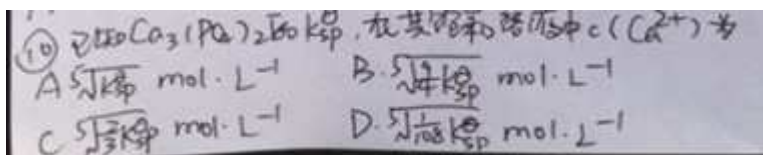 ⑩ 已知Ca₃(PO₄)₂的K^θsp，在其饱和溶液中c(Ca²⁺)为
A ⁵√K^θsp mol·L⁻¹ B. ⁵√(9/4 K^θsp) mol·L⁻¹
C ⁵√(2/3 K^θsp) mol·L⁻¹ D. ⁵√(1/108 K^θsp) mol·L⁻¹